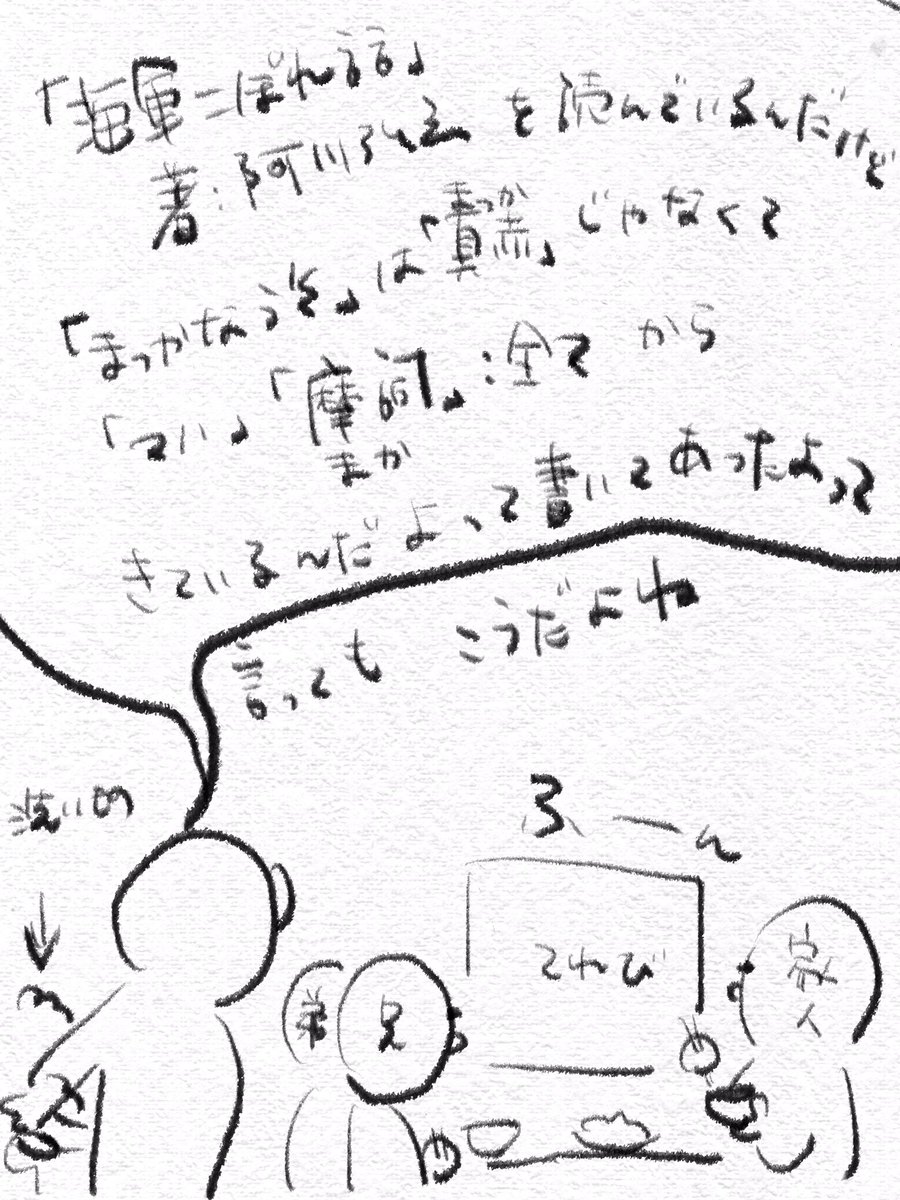 「海軍こぼれ話」
著:阿川弘之 を読んでいるんだけど
「まっかなうそ」は「真っ赤」じゃなくて
「てい」「摩訶」:全て から
まか
きているんだよって書いてあったよって
言っても こうだよね
洗い物
ふーん
てれび
弟
兄
家人